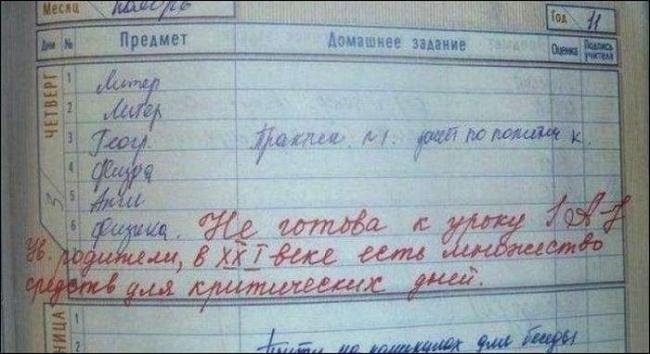 Месяц ноябрь Год 11
Дни № Предмет Домашнее задание Оценка Подпись учителя
ЧЕТВЕРГ 3
1 Литер
2 Литер
3 Геогр. Практич. №1. по полит к.
4 Физра
5 Англ
6 Физика. Не готова к уроку
Ув. родители, в XXI веке есть множество
средств для критических дней.
НИЦА
1
2 на каникулах для беседы